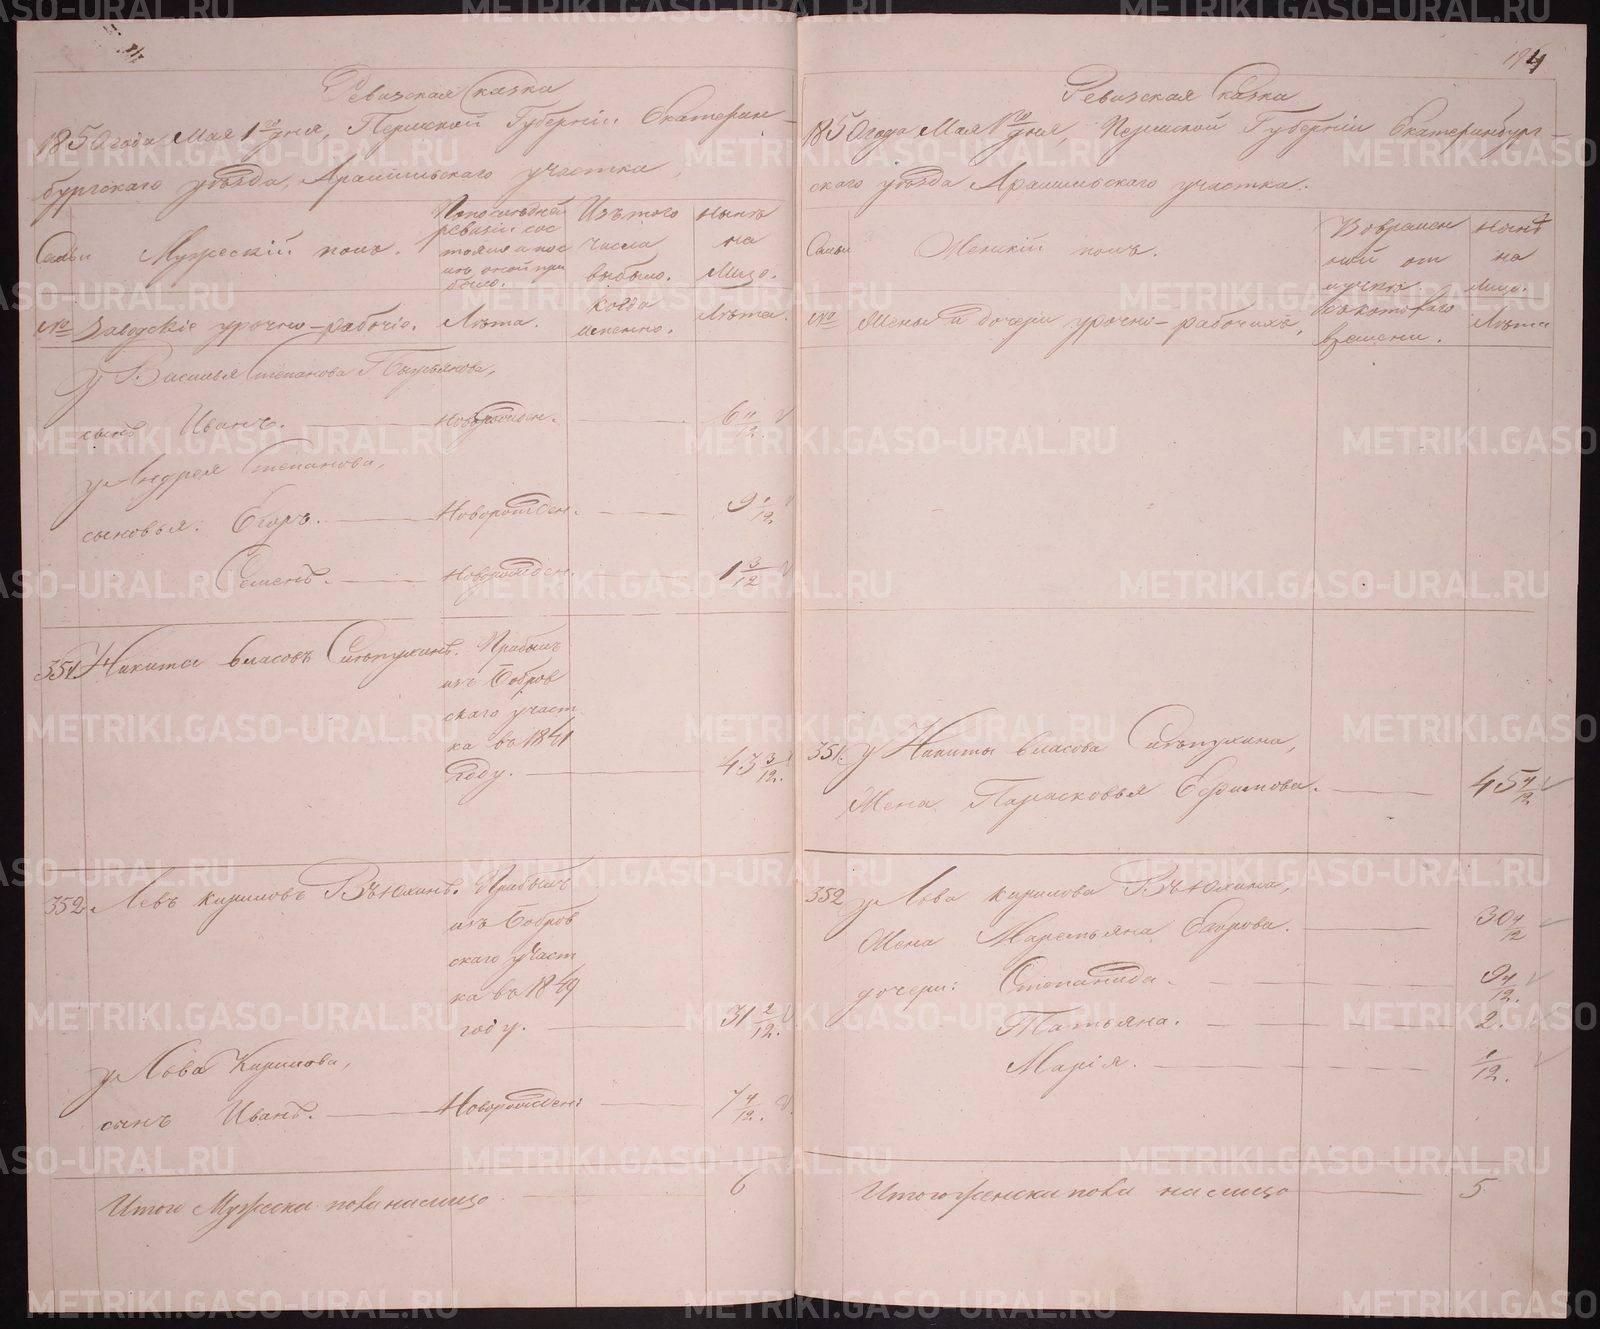 194
Ревизская Сказка
1850 года Мая 1го дня, Пермской Губернiи Екатерин-
бургскаго уѣзда, Арамильскаго участка,
Семьи
Мужескiй полъ.
По последней ревизiи состояло и после оной при было.
Изъ того числа выбыло.
Нынѣ на Лицо.
№
Заводскiе урочно-рабочiе.
Лѣта.
Когда именно.
Лѣта.
у Василья Степанова
сынъ Иванъ. Новорожден. 6 11/12.
у Андрея Степанова,
сыновья: Егоръ. Новорожден. 9 1/12.
Семенъ. Новорожден. 1 3/12
351. Никита Власовъ Прибылъ
изъ Бобров
скаго участ
ка въ 1841
году. 43 3/12.
352. Левъ Кириловъ Вѣюхинъ. Прибылъ
изъ Бобров
скаго участ
ка въ 1849
году. 31 2/12.
у Лова Кирилова,
сынъ Иванъ. Новорожден: 7 4/12.
Итого Мужеска пола на лицо 6
Ревизская Сказка
1850 года Мая 1го дня, Пермской Губернiи Екатеринбург-
скаго уѣзда Арамильскаго участка.
Семьи
Женскiй полъ.
Во времен ной от лучкѣ.
Нынѣ на Лицо.
№
Жены и дочери урочно-рабочихъ,
Съ котораго времени.
Лѣта
351. у Никиты Власова
Жена Парасковья Ефимова. 45 4/12.
352 у Лова Кирилова Вѣюхина,
Жена Маремьяна Егорова. 30 4/12
дочери: Степанида. 9 4/12.
Татьяна. 2.
Марiя. 1/12.
Итого женска пола на лицо 5
METRIKI.GASO-URAL.RU